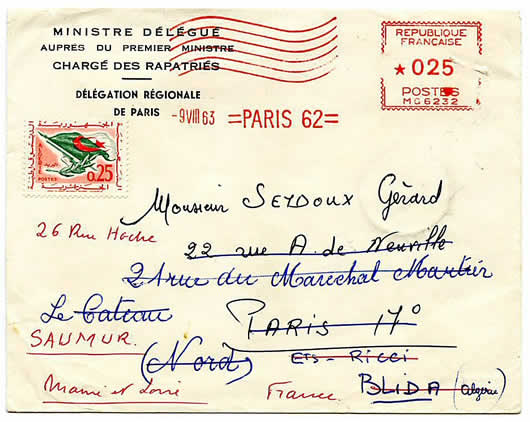 MINISTRE DÉLÉGUÉ
AUPRÈS DU PREMIER MINISTRE
CHARGÉ DES RAPATRIÉS
DÉLÉGATION RÉGIONALE
DE PARIS
RÉPUBLIQUE
FRANÇAISE
★025
POSTES
MG6232
-9VIII63 =PARIS 62=
POSTES
0.25
Monsieur SEYDOUX Gérard
26 Rue Hoche
22 rue A. de Neuville
21 rue du Marechal Mortier
Le Cateau
PARIS 17°
SAUMUR.
(Nord)
Ets - RICCI
Maine et Loire
France
BLIDA (Algérie)